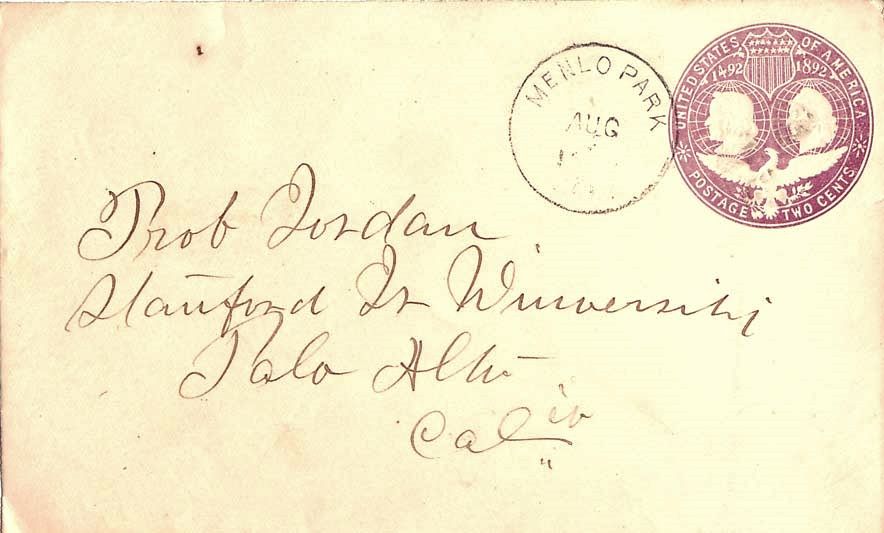 MENLO PARK
AUG
UNITED STATES OF AMERICA
1492 1892
POSTAGE TWO CENTS
Prob Jordan
Stanford Jr Winversity
Palo Alto
Cal